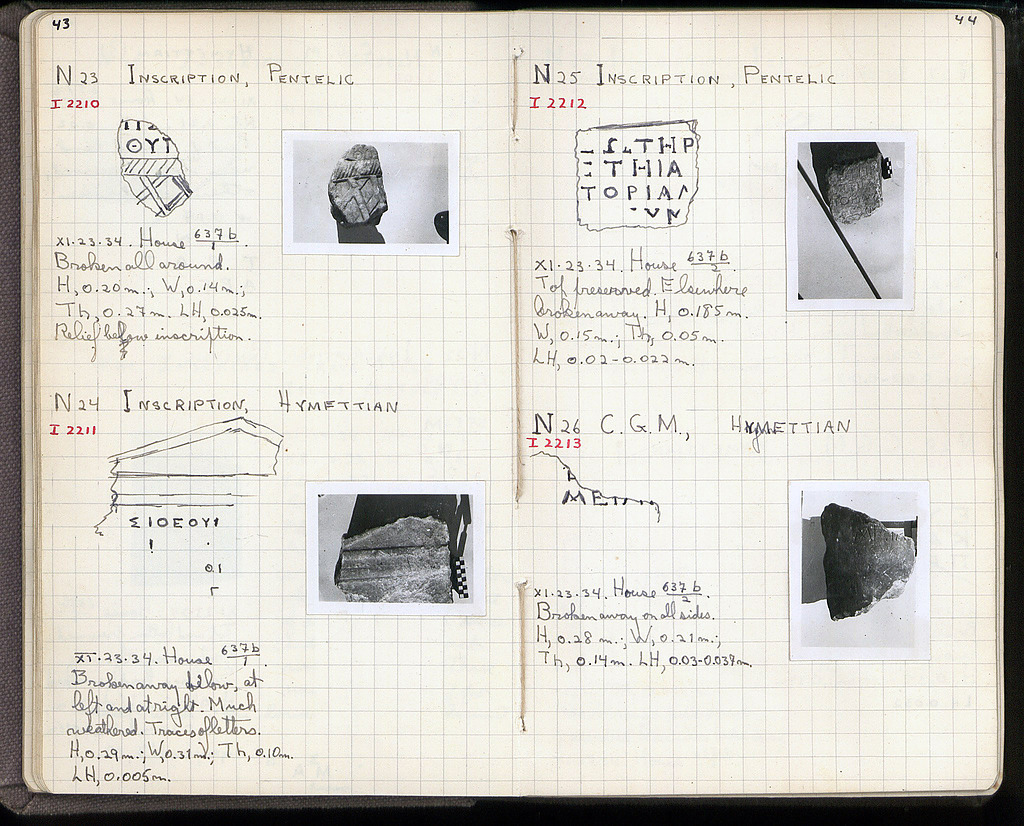 43
N 23 INSCRIPTION, PENTELIC
I 2210
ΟΥΤ
XI·23·34. House 637b/1.
Broken all around.
H, 0.20 m.; W, 0.14 m.;
Th, 0.27 m. LH, 0.025 m.
Relief below inscription.
N 24 INSCRIPTION, HYMETTIAN
I 2211
ΣΙΟΕΟΥΙ
XI·23·34. House 637b/1.
Broken away below, at
left and at right. Much
weathered. Traces of letters.
H, 0.29 m.; W, 0.31 m.; Th, 0.10 m.
LH, 0.005 m.
44
N 25 INSCRIPTION, PENTELIC
I 2212
ΤΗΡ
ΞΤΗΙΑ
ΤΟΡΙΑΛ
XI·23·34. House 637b/2.
Top preserved. Elsewhere
broken away. H, 0.185 m.
W, 0.15 m.; Th, 0.05 m.
LH, 0.02-0.022 m.
N 26 C.G.M., HYMETTIAN
I 2213
ΜΕΤ
XI·23·34. House 637b/2.
Broken away on all sides.
H, 0.28 m.; W, 0.21 m.;
Th, 0.14 m. LH, 0.03-0.039 m.